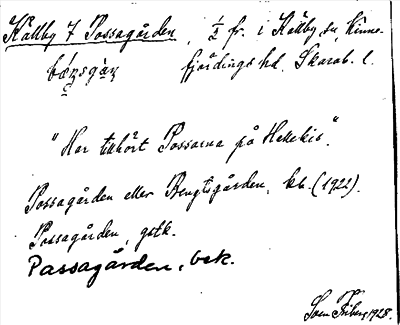 Källby 7 Possagården, 1/2 fr. i Källby sn, Kinne-
fjärdings hd. Skarab. l.
"Har tillhört Possarna på Hellekis".
Possagården eller Bengtsgården, kb. (1922).
Possagården, gstk.
Passagården, bek.
Sven Friberg 1928.